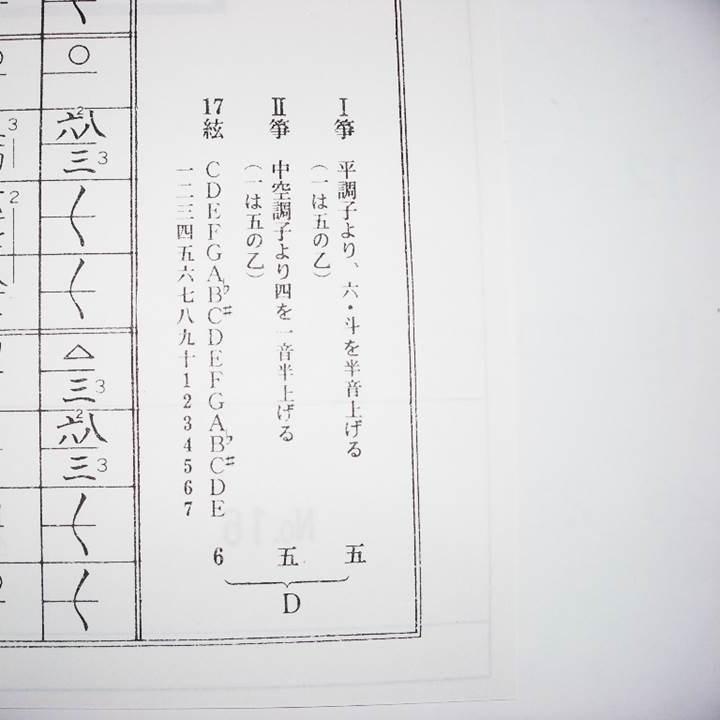 I箏 平調子より、六・斗を半音上げる 五
(一は五の乙)
II箏 中空調子より四を一音半上げる 五
(一は五の乙)
17絃 CDEFGAB♭C♯DEFGAB♭C♯DE 6
一二三四五六七八九十1234567
D
○
六八2
三3
△
三3
六八2
三3
3
2
No.16